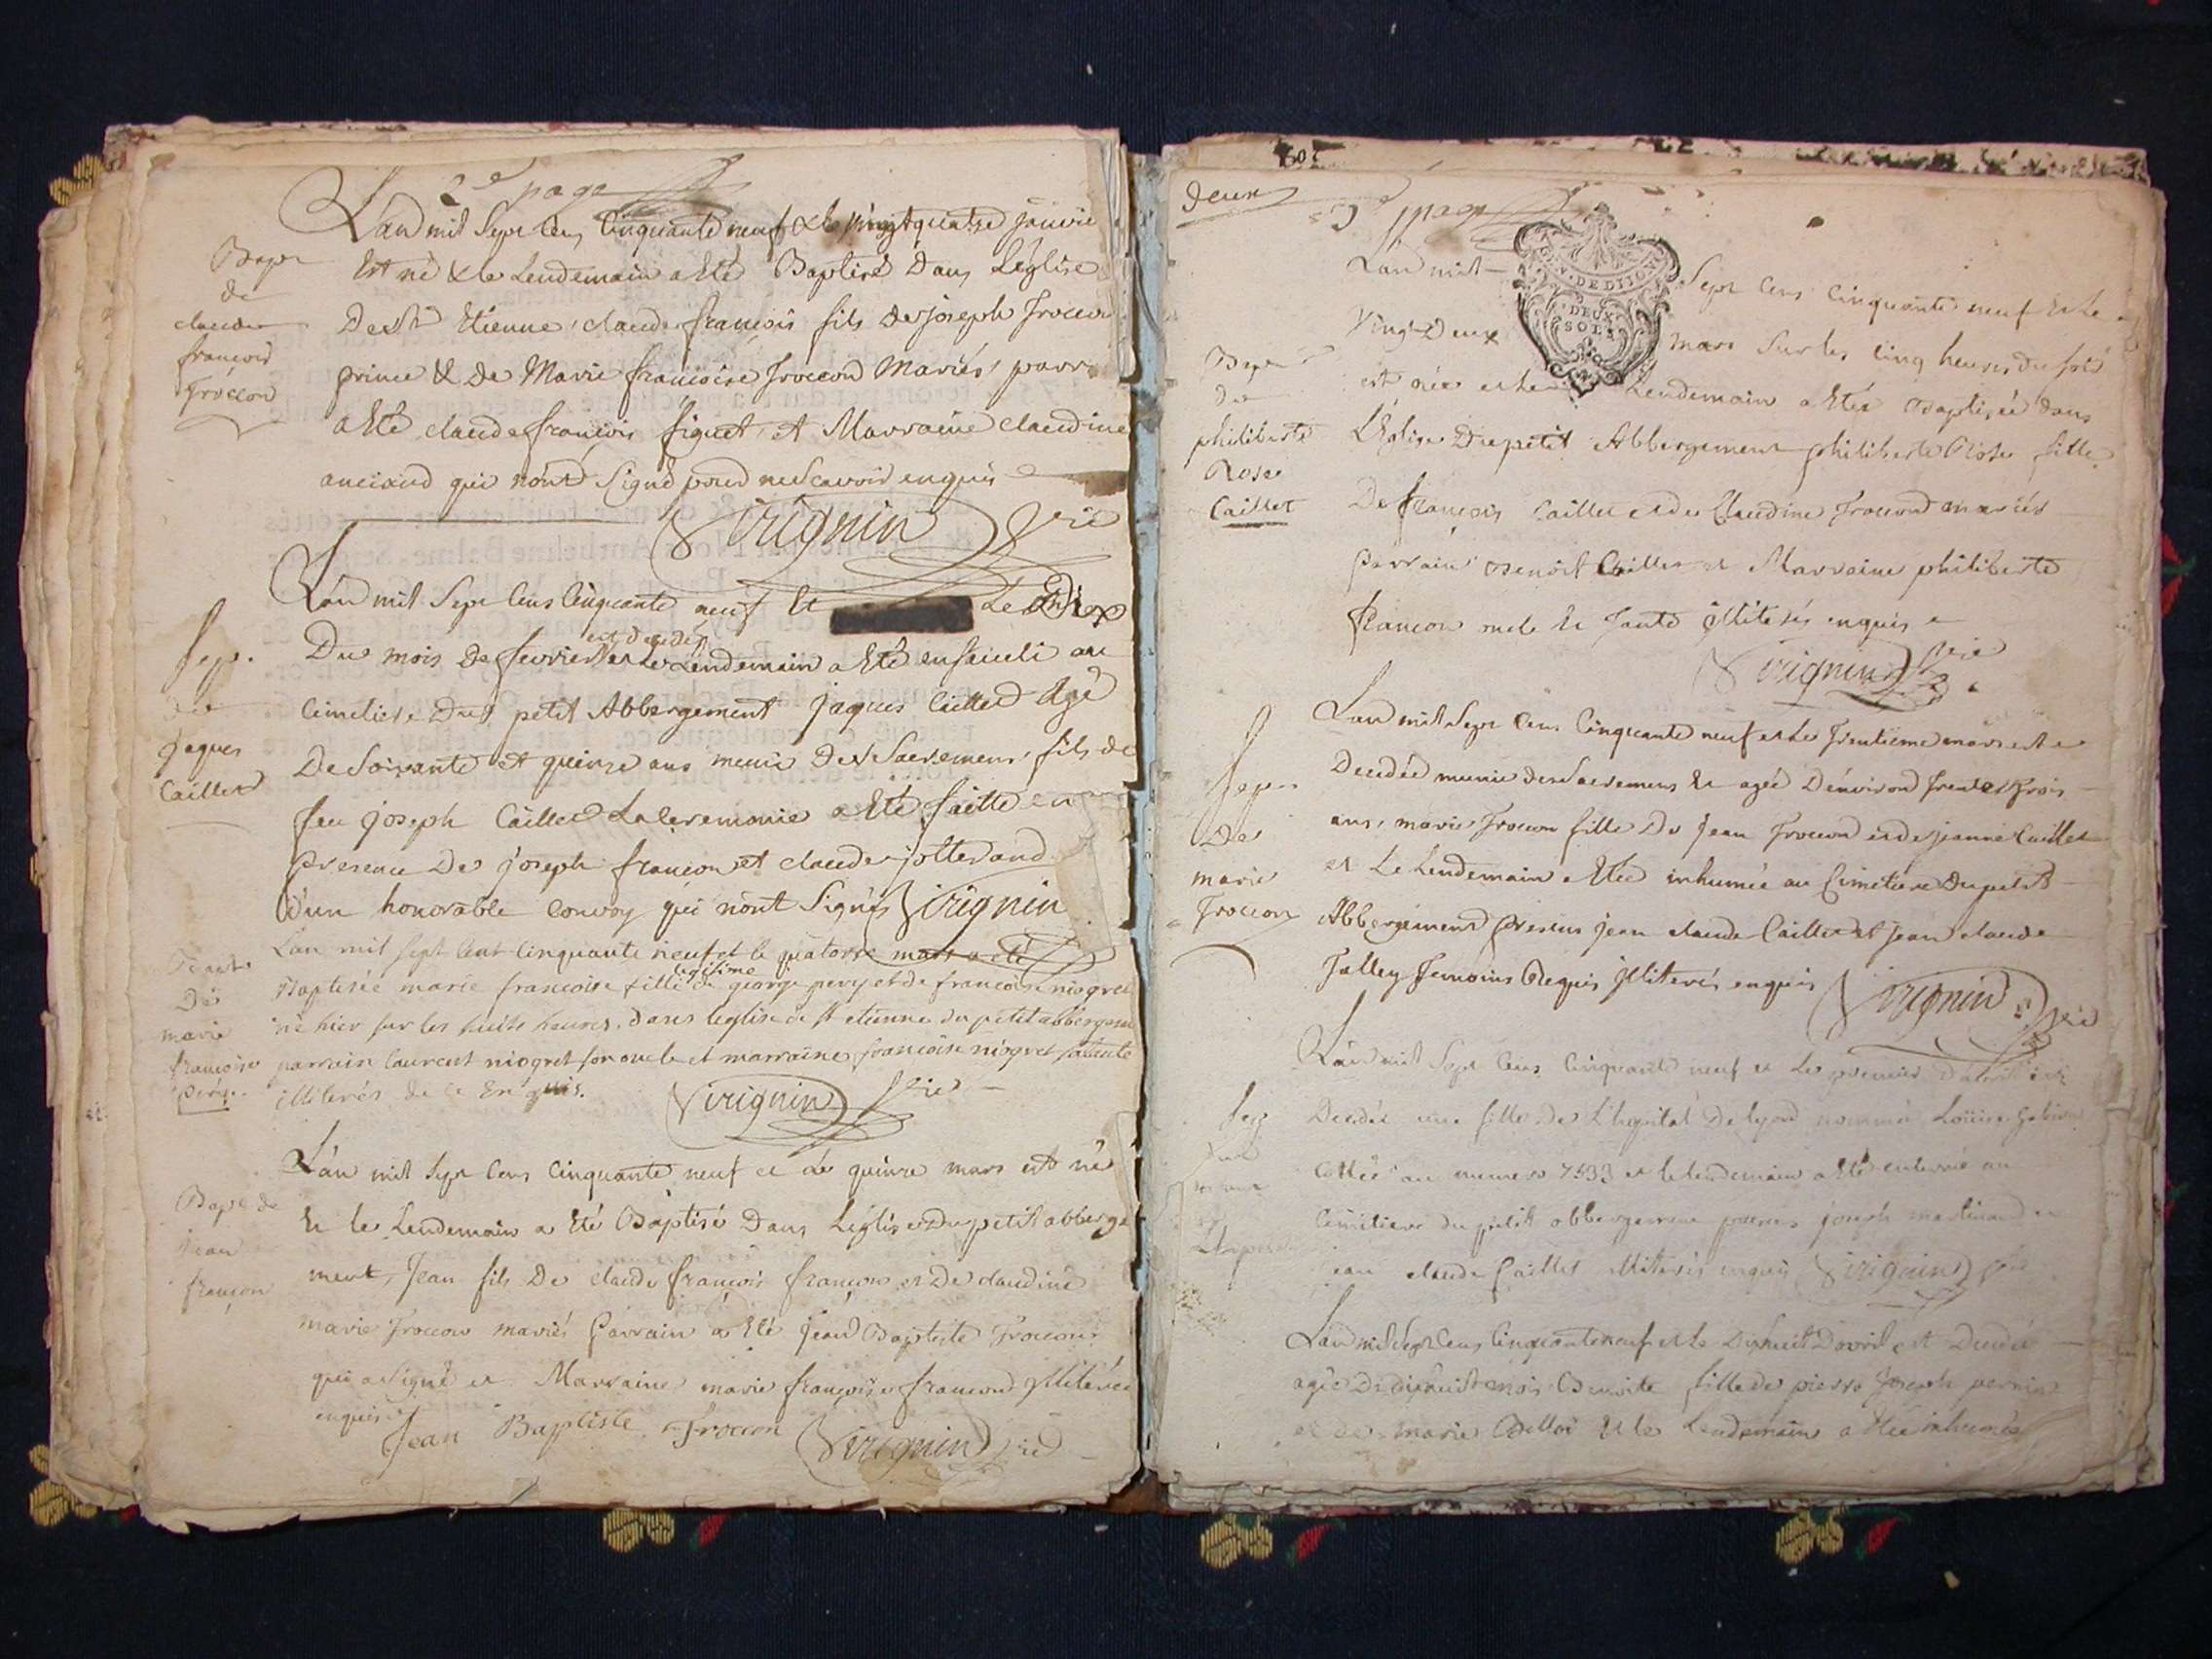 2e page
L'an mil Sept Cens Cinquante neuf & le vingt quatre janvie
Bapt
de
claude
françois
Troccon
Est né & le Lendemain a Eté Baptisé Dans L'église
De St Etienne, claude françois fils de joseph Troccon
prince & de Marie françoise Troccon Mariés, parr
a Eté claude françois figuet, et Marraine claudine
anciand qui n'ont Signé pour ne Scavoir enquis
Virignin Vic
L'an mil Sept Cens Cinquante neuf Et Le Dix
Sep.
de
jaques
Caillet
Du mois de fevrier est decedé et le Lendemain a Eté enseveli au
Cimetiere Du petit Abbergement jaques Caillet Agé
De Soixante et quinze ans muni des Sacremens, fils de
feu joseph Caillet La Ceremonie a Eté faitte en
presence De joseph françon et claude jolterand
D'un honorable Convoy qui n'ont Signés Virignin
L'an mil sept Cent Cinquante neuf et le quatorze mars a été
De
marie
françoise
pery
Baptisée marie francoise fille legitime de george pery et de francoise niogret
né hier sur les huits heures, dans l'eglise de st etienne du petit abbergem
parrain laurent niogret son oncle et marraine francoise niogret sa tante
illiterés de ce Enquis. Virignin Vic
L'an mil Sept Cens Cinquante neuf et Le quinze mars est né
Bapt de
jean
françon
Et le Lendemain a Eté Baptisé Dans L'église Du petit abberge
ment, Jean fils De claude françois françon et De claudine
marie Troccon mariés Parrain a Eté jean Baptiste Troccon
qui a Signé et Marraine marie françoise françon Illiterée
enquise
Jean Baptiste Troccon Virignin Vic
deux
3e page
GEN. DE DIJON
DEUX
SOLS
L'an mil Sept Cens Cinquante neuf et Le
Vingt Deux mars Sur les Cinq heures du soir
Bapt
de
philiberte
Rose
Caillet
est née et le Lendemain a Etée Baptisée dans
L'Eglise Du petit Abbergement philiberte Rose fille
De françois Caillet et de Claudine Troccon mariés
Parrain Benoit Caillet et Marraine philiberte
francon oncle Et Tante Illiterés enquis
Virignin Vic
L'an mil Sept Cens Cinquante neuf et Le Trentieme mars est
Sep.
De
marie
Troccon
Decedée munie des Sacremens Et agée D'environ Trente et Trois
ans, marie Troccon fille De Jean Troccon et de jeanne Caillet
et Le Lendemain a Etée inhumée au Cimetiere Du petit
Abbergement Presens jean claude Caillet et Jean claude
Talley Temoins Requis Illiterés enquis Virignin Vic
L'an mil Sept Cens Cinquante neuf et Le premier D'avril est
Sep
Decedée une fille De L'hopital De lyon nommée Louise
Cottée au numero 7533 et le lendemain a Eté enterrée au
Cimetiere du petit abbergement presens joseph martinand et
jean claude Caillet illiterés enquis Virignin Vic
L'an mil Sept Cens Cinquante neuf et Le Dixhuit D'avril est Decedée
agée De dixhuit mois Benoite fille de pierre Joseph
et de marie Et le Lendemain a Etée inhumée